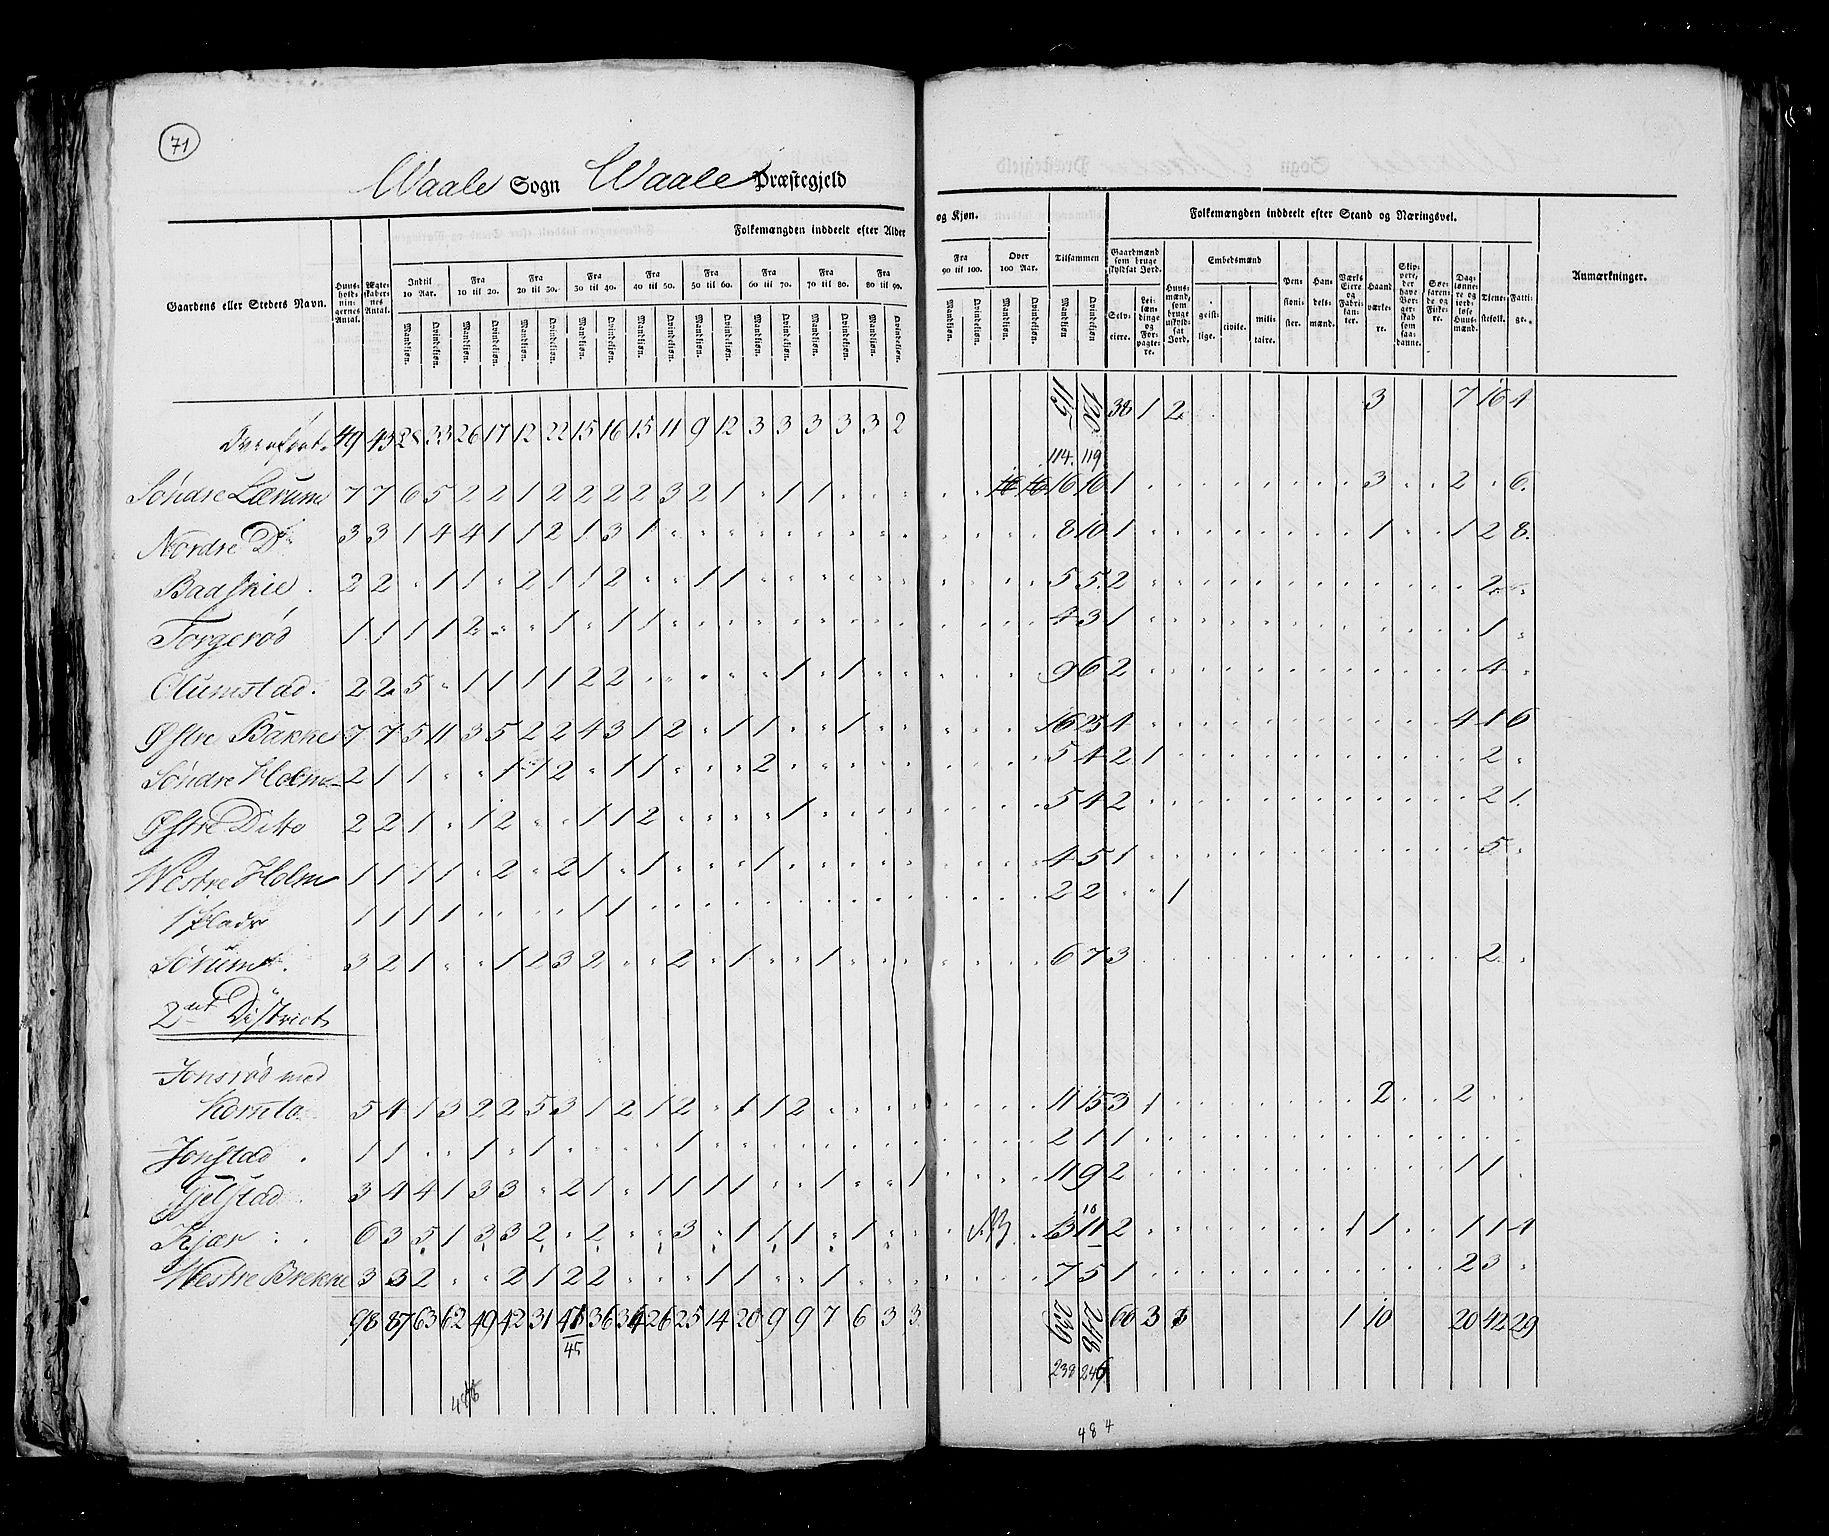 71
Waale Sogn Waale Præstegjeld
Folkemængden inddeelt efter Alder og Kjøn.
Folkemængden inddeelt efter Stand og Næringsvei.
Gaardens eller Stedets Navn.
Huusholdningernes Antal.
Ægteskabernes Antal.
Indtil 10 Aar.
Fra 10 til 20.
Fra 20 til 30.
Fra 30 til 40.
Fra 40 til 50.
Fra 50 til 60.
Fra 60 til 70.
Fra 70 til 80.
Fra 80 til 90.
Fra 90 til 100.
Over 100 Aar.
Tilsammen
Mandkjøn. Qvindekjøn.
Gaardmænd som bruge skyldsat Jord.
Selveiere.
Leilændinge og Forpagtere.
Huusmænd, som bruge uskyldsat Jord.
Embedsmænd
geistlige. civile. militaire.
Pensionister.
Handelsmænd.
Værkseiere og Fabrikanter.
Haandværkere.
Skippere, der have Borgerskab som saadanne.
Søefarende og Fiskere.
Daglønnere og jordløse Huusmænd.
Tienestefolk.
Fattige.
Anmærkninger.
49 43 28 33 26 17 12 22 15 16 15 11 9 12 3 3 3 3 3 2 115 120 38 1 2 3 7 16 4
114. 119
Søndre Lærum 7 7 6 5 2 2 1 2 2 2 2 3 2 1 " 1 1 16 16 16 16 1 3 2 6.
Nordre Do 3 3 1 4 4 1 1 2 1 3 1 8 10 1 1 1 2 8.
2 2 " 1 1 " 2 1 1 2 " " " 1 1 5 5 2 2
Torgerød 1 1 1 1 2 " " 1 " 1 1 4 3 1 1
Olumstad. 2 2 5 " 1 1 1 1 2 2 1 " 1 9 6 2 4
Østre Bakke 7 7 5 11 3 5 2 2 4 3 1 2 " 1 1 " " 1 16 25 4 4 1 6
Søndre Holm 2 1 1 " " 1 1 2 " 1 1 " " " 2 5 4 2 1 2
Østre Ditto 2 2 1 " 1 2 " " 1 1 2 " " " " 1 5 4 2 2 1.
Westre Holm 1 1 1 1 " 2 " 2 1 " 1 " " " 1 4 5 1 5
1 Plads 1 1 1 1 " " " " 1 1 2 2 1
Sørum. 3 2 1 " " 1 2 3 2 " " 2 " 1 " " 1 6 7 3 2
2det District
Jonsrød med
5 4 1 3 2 2 5 3 1 2 1 2 " 1 1 2 11 15 3 1 2 2
Jonstad 1 1 " " 1 " 1 " " " " 1 2 1 1
Gjelstad 3 4 4 1 3 3 " 2 1 " 1 1 1 1 " " 1 " " 1 11 9 2 1 1
10
Kjær 6 3 5 1 3 3 2 " 2 " " 3 " 1 1 1 " 1 NB 13 11 2 1 1 1 1 4
Westre Brekke 3 3 2 " " 2 1 2 2 " " " 1 1 " " 1 7 5 1 2 3
98 87 63 62 49 42 31 48 36 34 26 25 14 20 9 9 7 6 3 3 239 248 66 3 3 1 10 20 42 29
45
238 246
484